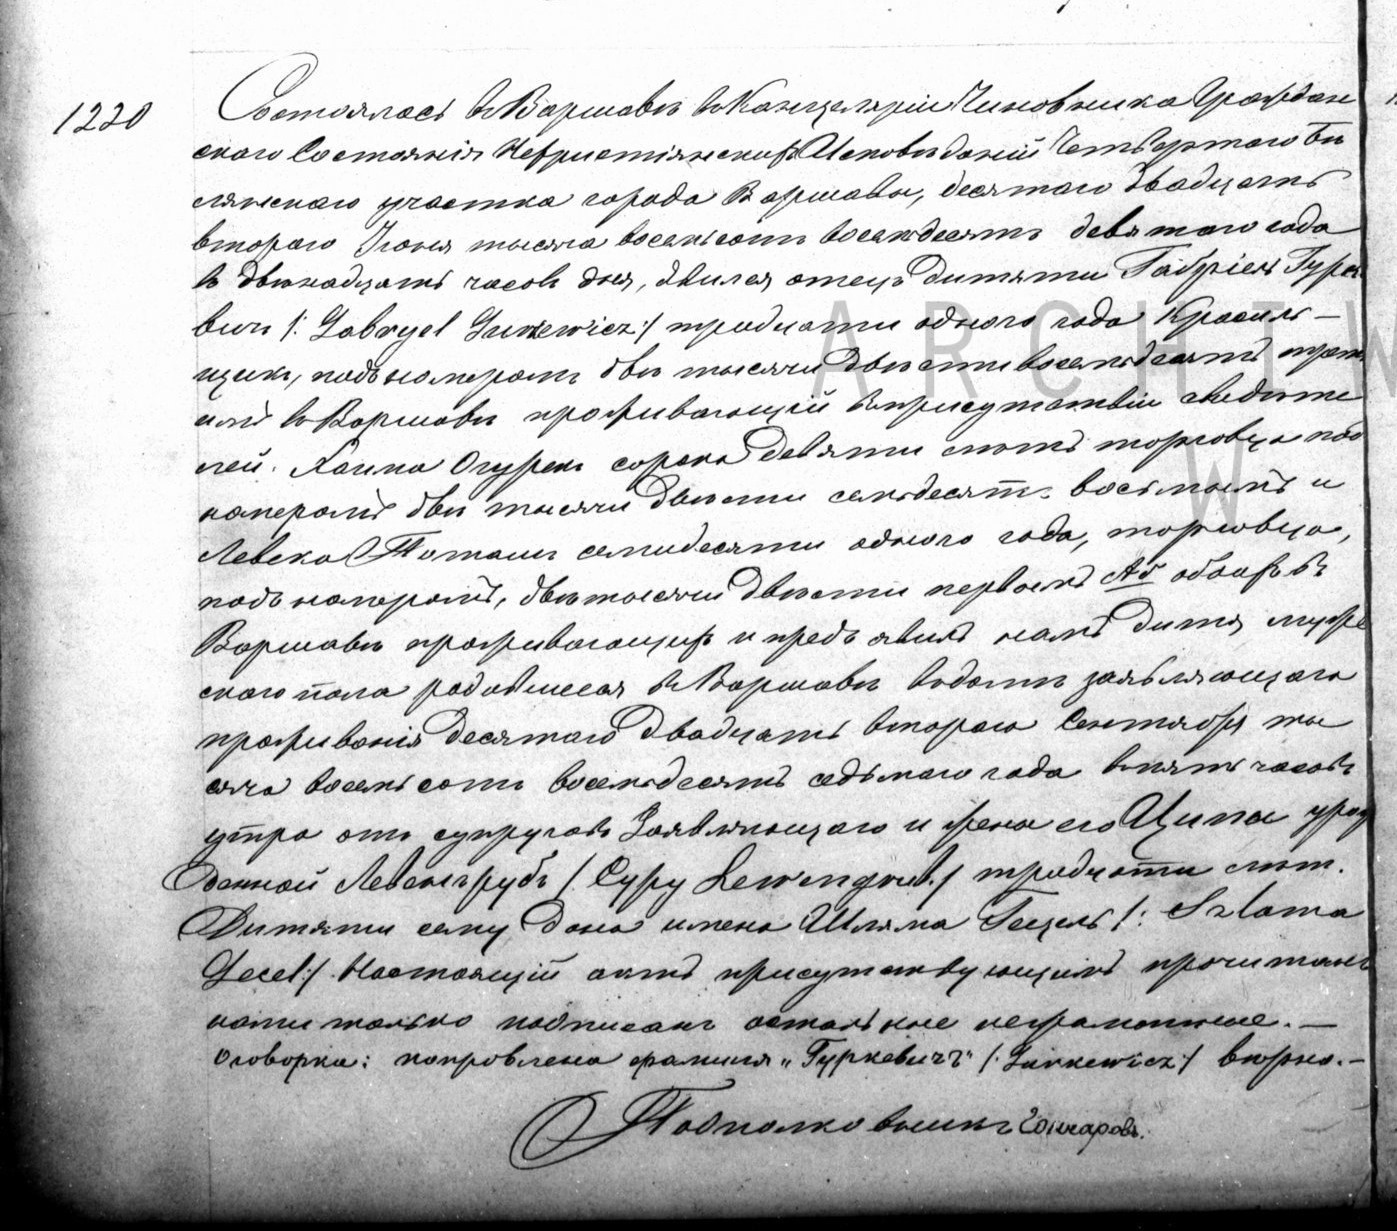 1220
Состоялось въ Варшавѣ въ Канцеляріи Чиновника Граждан
скаго Состоянія Нехристіянскихъ Исповѣданій Четвертаго Бѣ
лянскаго участка города Варшавы, десятаго двадцать
втораго Іюня тысяча восемьсотъ восемьдесятъ девятаго года
въ двѣнадцать часовъ дня, Явился отецъ дитяти Габріель Гурке
вичъ /: Gabryel Gurkewicz :/ тридцати одного года Красиль—
щикъ, подъ номеромъ двѣ тысячи двѣсти восемьдесятъ треть
имъ въ Варшавѣ проживающій въ присутствіи свидѣте
лей: Хаима Огурекъ сорока девяти лѣтъ торговца под
номеромъ двѣ тысячи двѣсти семьдесятъ восьмымъ и
Левека Поташъ семидесяти одного года, торговца,
подъ номеромъ, двѣ тысячи двѣсти первымъ АБ обоихъ въ
Варшавѣ проживающихъ и предъявилъ намъ дитя муже
скаго пола родившееся въ Варшавѣ въ домѣ заявляющаго
проживанія десятаго двадцать втораго Сентября ты
сяча восемьсотъ восемьдесятъ седьмаго года въ пять часовъ
утра отъ супруговъ Заявляющаго и жены его Ципы урож
денной Левенгрубъ / Cypy Lewengrub / тридцати лѣтъ.
Дитяти сему дано имена Шляма Гецель /: Szlama
Gecel :/ Настоящій актъ присутствующимъ прочитанъ
нами только подписанъ остальные неграмотные. —
Оговорка: поправлена фамилія „Гуркевичъ" /: Gurkewicz :/ вѣрно. —
Подполковникъ Гончаровъ.
ARCHIW
W